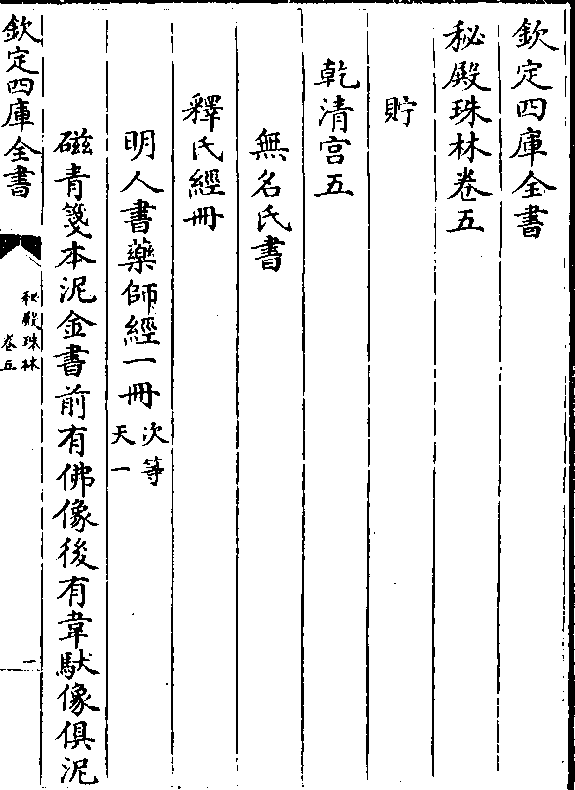 欽定四庫全書
秘殿珠林卷五
貯
乾清宫五
無名氏書
釋氏經冊
明人書藥師經一冊次等天一
磁青箋本泥金書前有佛像後有韋馱像俱泥
欽定四庫全書
秘殿珠林
卷五
一